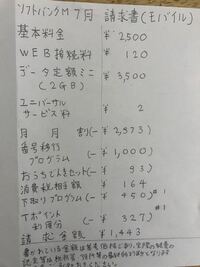 ソフトバンクM 7月 請求書(モバイル)
基本料金 ¥2,500
WEB接続料 ¥ 120
データ定額ミニ ¥3,500
(2GB)
ユニバーサル ¥ 2
サービス料
月月割(-¥2,973)
番号移行
プログラム (-¥1,000)
おうち割セット(-¥ 93)
消費税相当額 ¥ 164
下取りプログラム(-¥ 450)※1
Tポイント (-¥ 327)※1
利用分
請求金額 ¥1,443